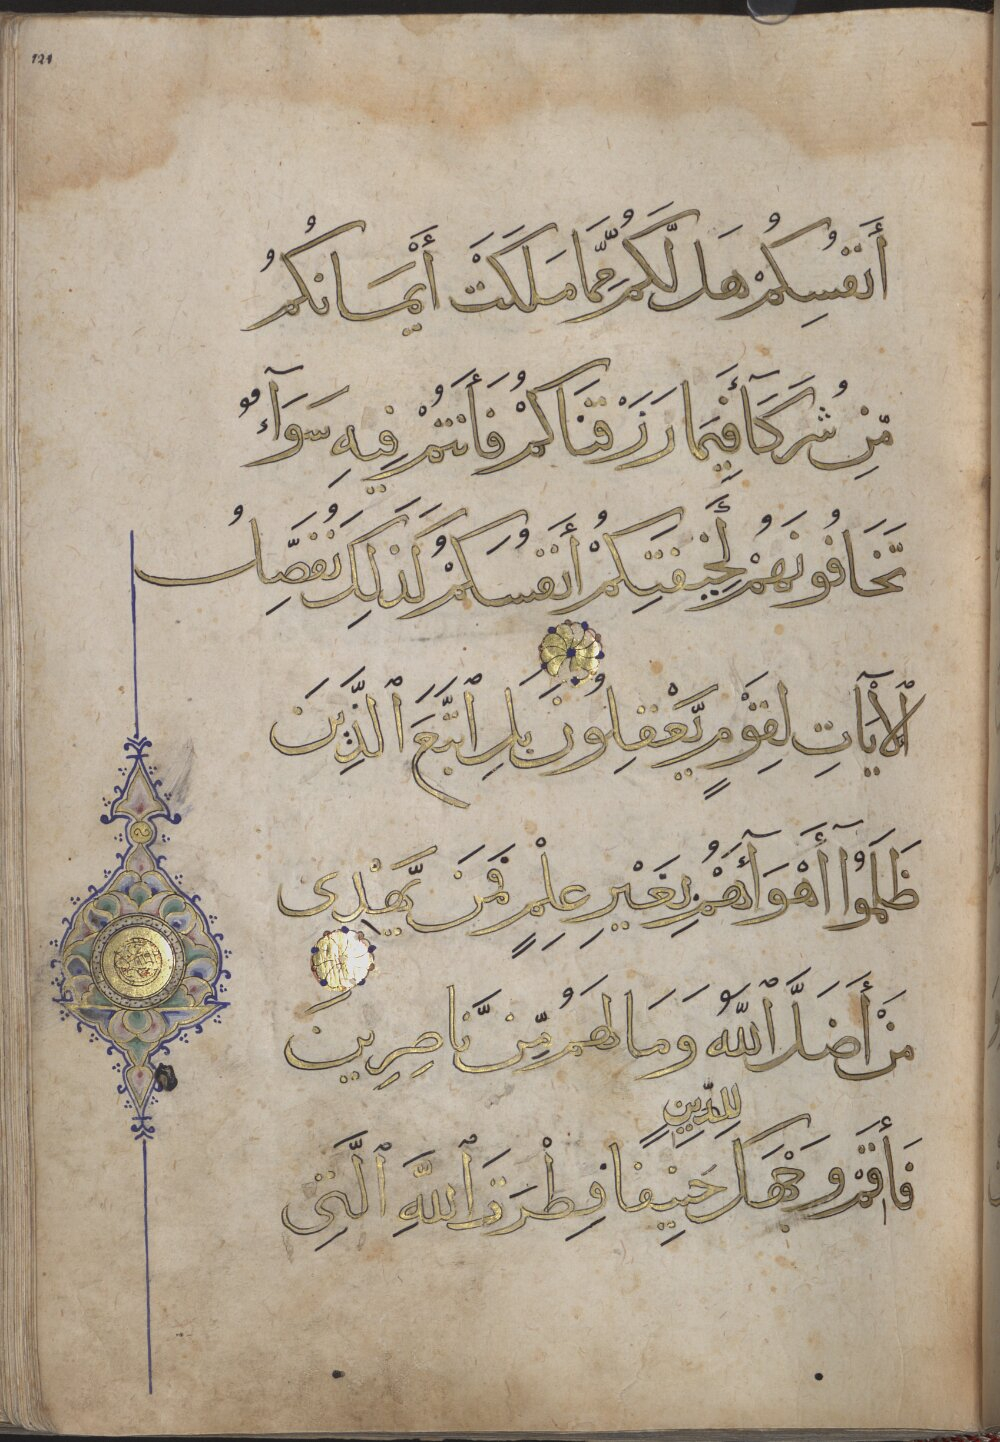 121
أَنفُسِكُمْ هَل لَّكُم مِّمَّا مَلَكَتْ أَيْمَانُكُم
مِّن شُرَكَآءَ فِيمَا رَزَقْنَاكُمْ فَأَنتُمْ فِيهِ سَوَآءٌ
تَخَافُونَهُمْ كَخِيفَتِكُمْ أَنفُسَكُمْ كَذَلِكَ نُفَصِّلُ
ٱلْأَيَاتِ لِقَوْمٍ يَعْقِلُونَ بَلِ ٱتَّبَعَ ٱلَّذِينَ
ظَلَمُوٓا أَهْوَآءَهُمْ بِغَيْرِ عِلْمٍ فَمَن يَهْدِى
مَنْ أَضَلَّ ٱللَّهُ وَمَا لَهُم مِّن نَّاصِرِينَ
لِلدِّينِ
فَأَقِمْ وَجْهَكَ حَنِيفًا فِطْرَتَ ٱللَّهِ ٱلَّتِى